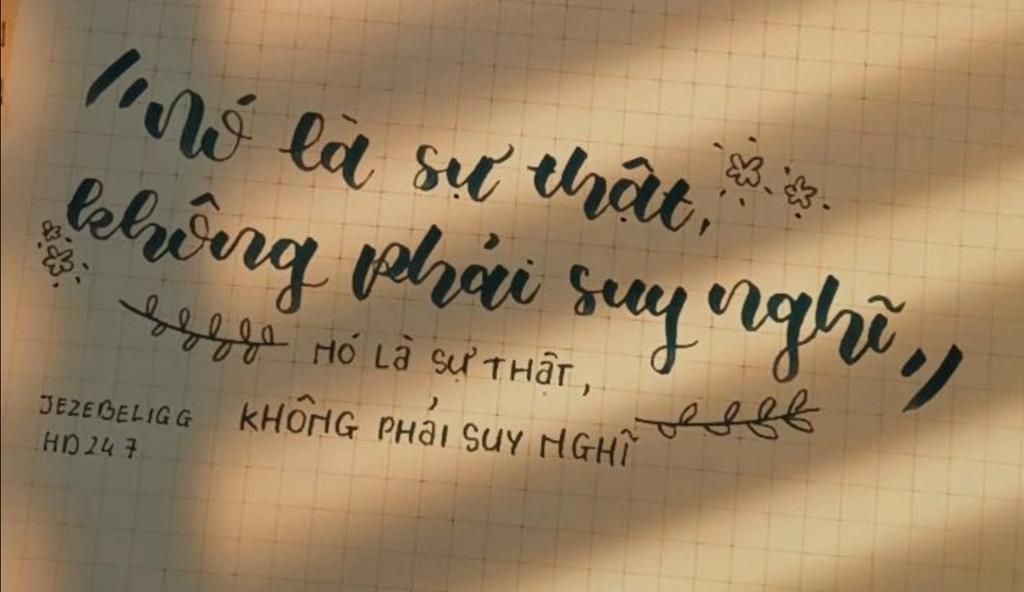 "Nó là sự thật,
không phải suy nghĩ,"
NÓ LÀ SỰ THẬT,
KHÔNG PHẢI SUY NGHĨ
JEZEBELIGG
HD247